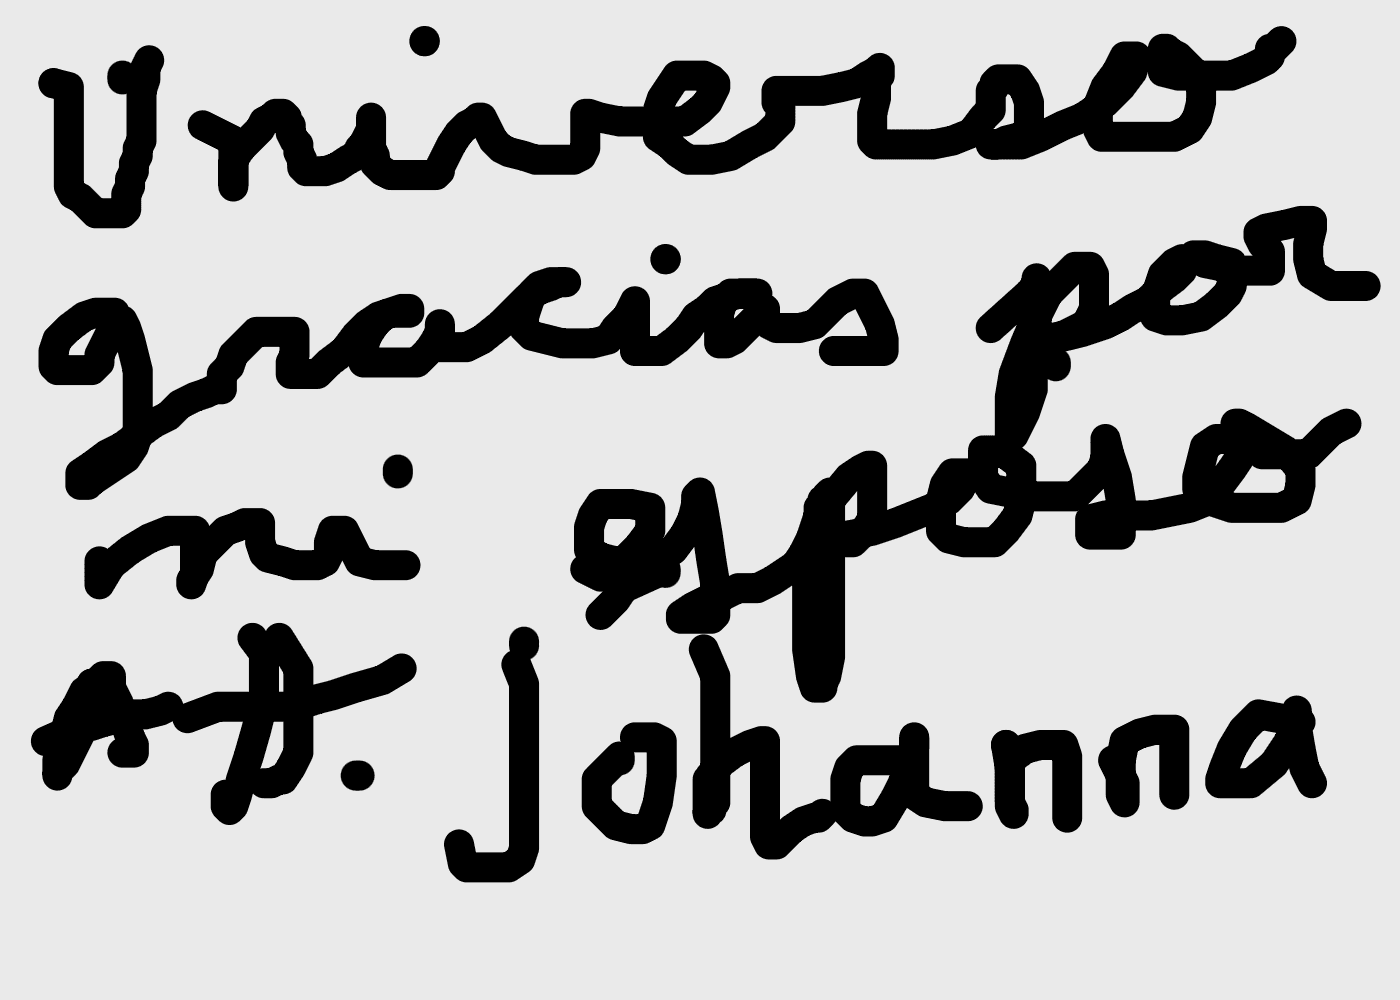 Universo
gracias por
mi esposo
Att. Johanna